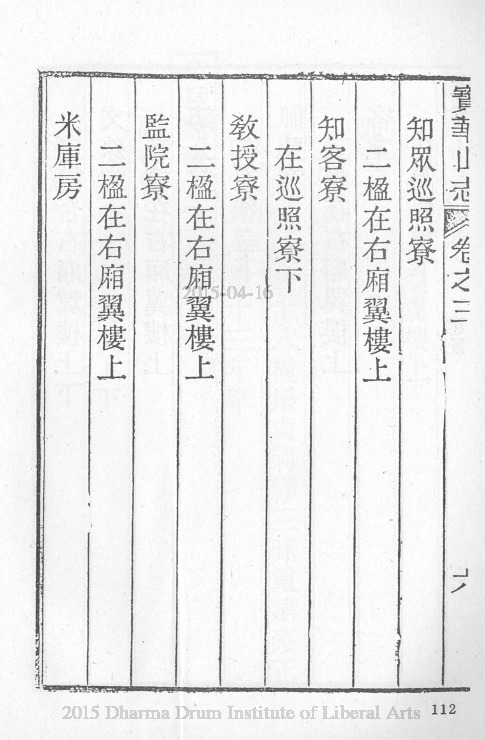 寶華山志 卷之三
知眾巡照寮
二楹在右廂翼樓上
知客寮
在巡照寮下
教授寮
二楹在右廂翼樓上
監院寮
二楹在右廂翼樓上
米庫房
2015-04-16
2015 Dharma Drum Institute of Liberal Arts
112